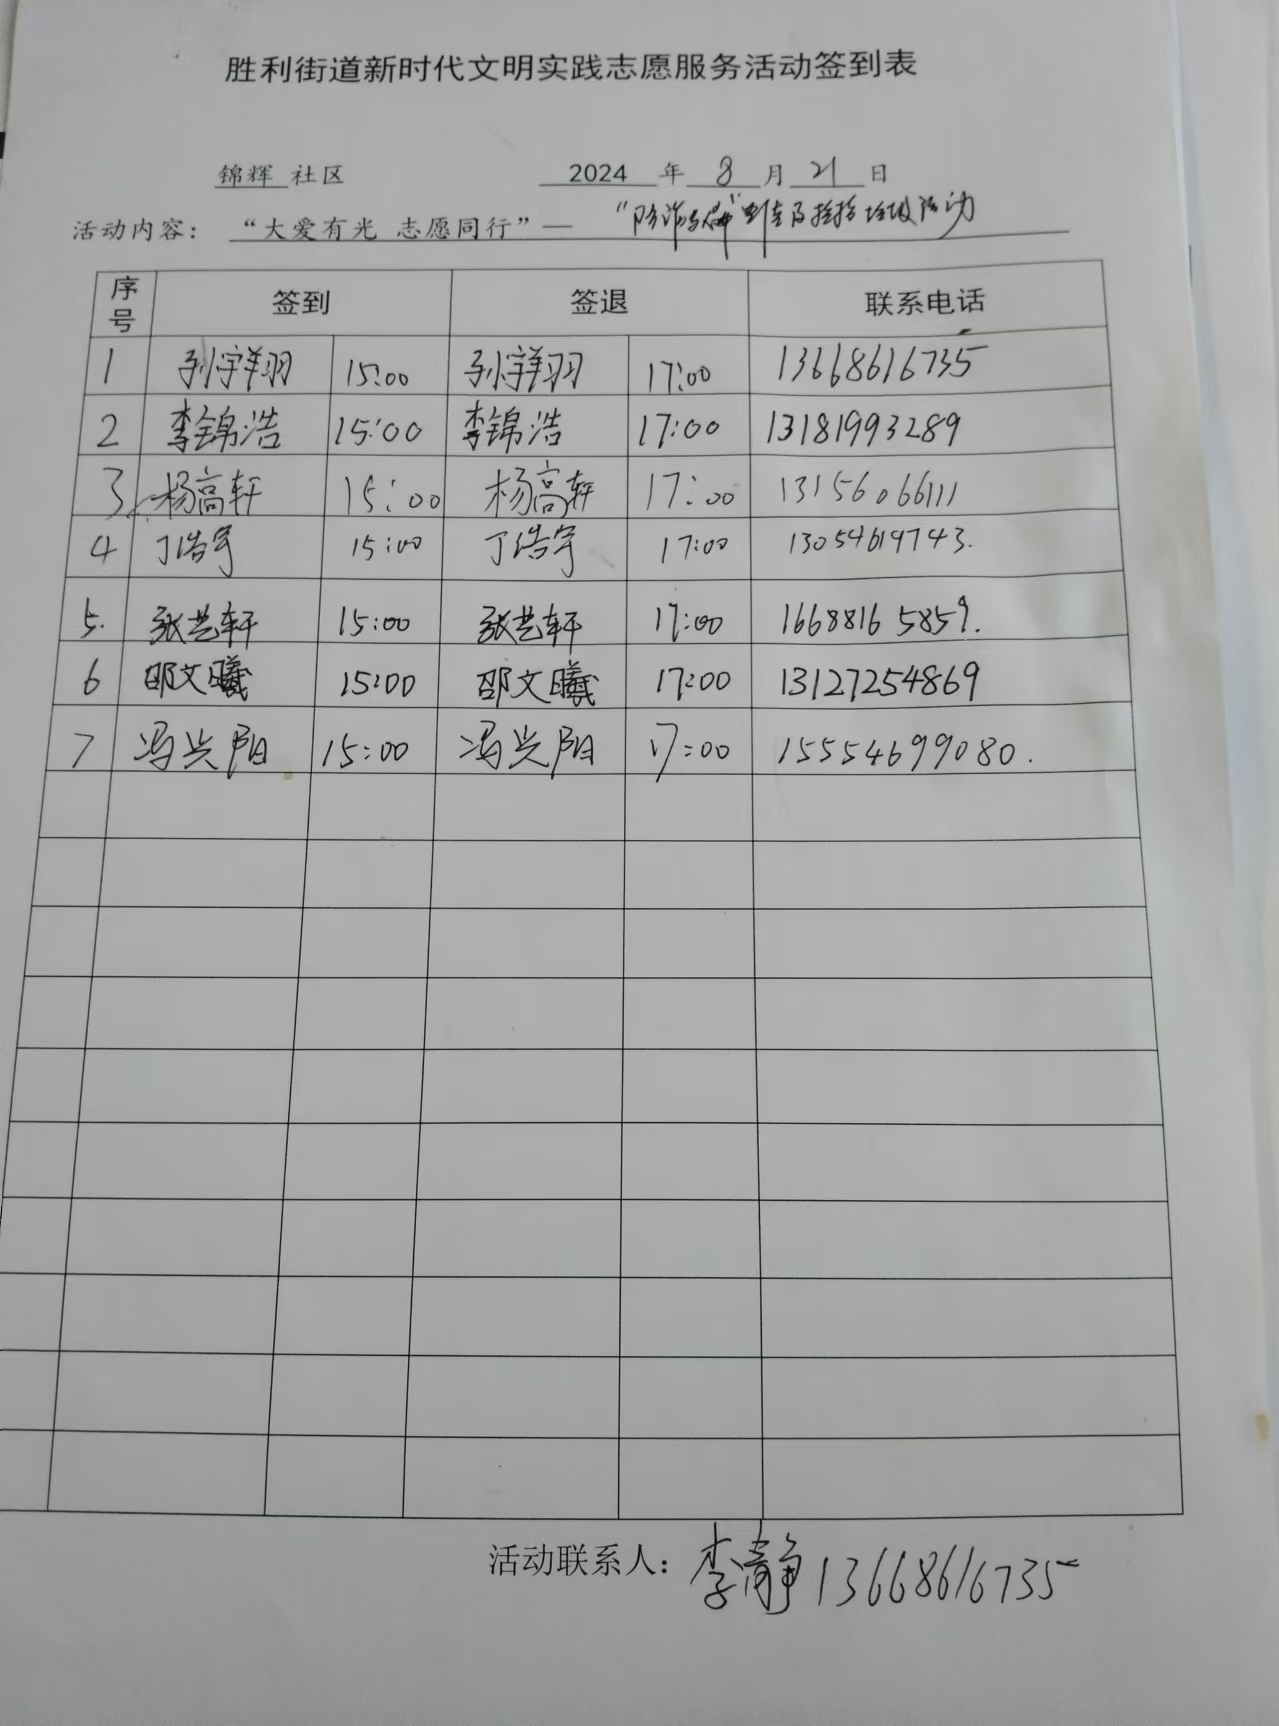 胜利街道新时代文明实践志愿服务活动签到表
锦辉 社区 2024 年 8 月 21 日
活动内容： “大爱有光 志愿同行”— “防诈 及捡拾垃圾活动
序号 签到 签退 联系电话
1 孙宇翔羽 15:00 孙宇翔羽 17:00 13668616735
2 李锦浩 15:00 李锦浩 17:00 13181993289
3 杨高轩 15:00 杨高轩 17:00 13156066111
4 丁浩宇 15:00 丁浩宇 17:00 13054619743.
5. 张艺轩 15:00 张艺轩 17:00 16688165859.
6 邵文曦 15:00 邵文曦 17:00 13127254869
7 冯兴阳 15:00 冯兴阳 17:00 15554699080.
活动联系人： 李静 13668616735